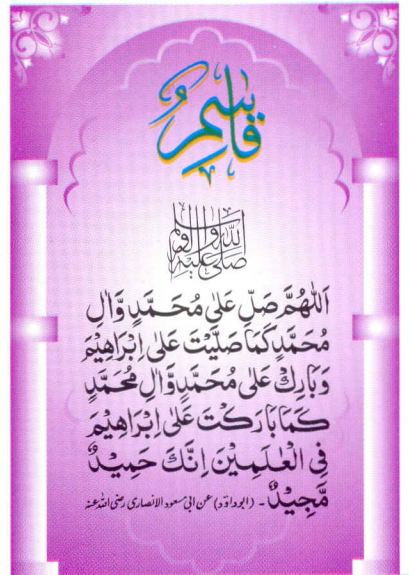 قَاسِمُ
صَلَّى اللهُ عَلَيْهِ وَاٰلِهٖ وَسَلَّمَ
اَللّٰهُمَّ صَلِّ عَلٰى مُحَمَّدٍ وَّاٰلِ
مُحَمَّدٍ كَمَا صَلَّيْتَ عَلٰى اِبْرَاهِيْمَ
وَبَارِكْ عَلٰى مُحَمَّدٍ وَّاٰلِ مُحَمَّدٍ
كَمَا بَارَكْتَ عَلٰى اِبْرَاهِيْمَ
فِى الْعٰلَمِيْنَ اِنَّكَ حَمِيْدٌ
مَّجِيْدٌ - (ابوداؤد) عن ابی مسعود الانصاری رضی اللہ عنہ